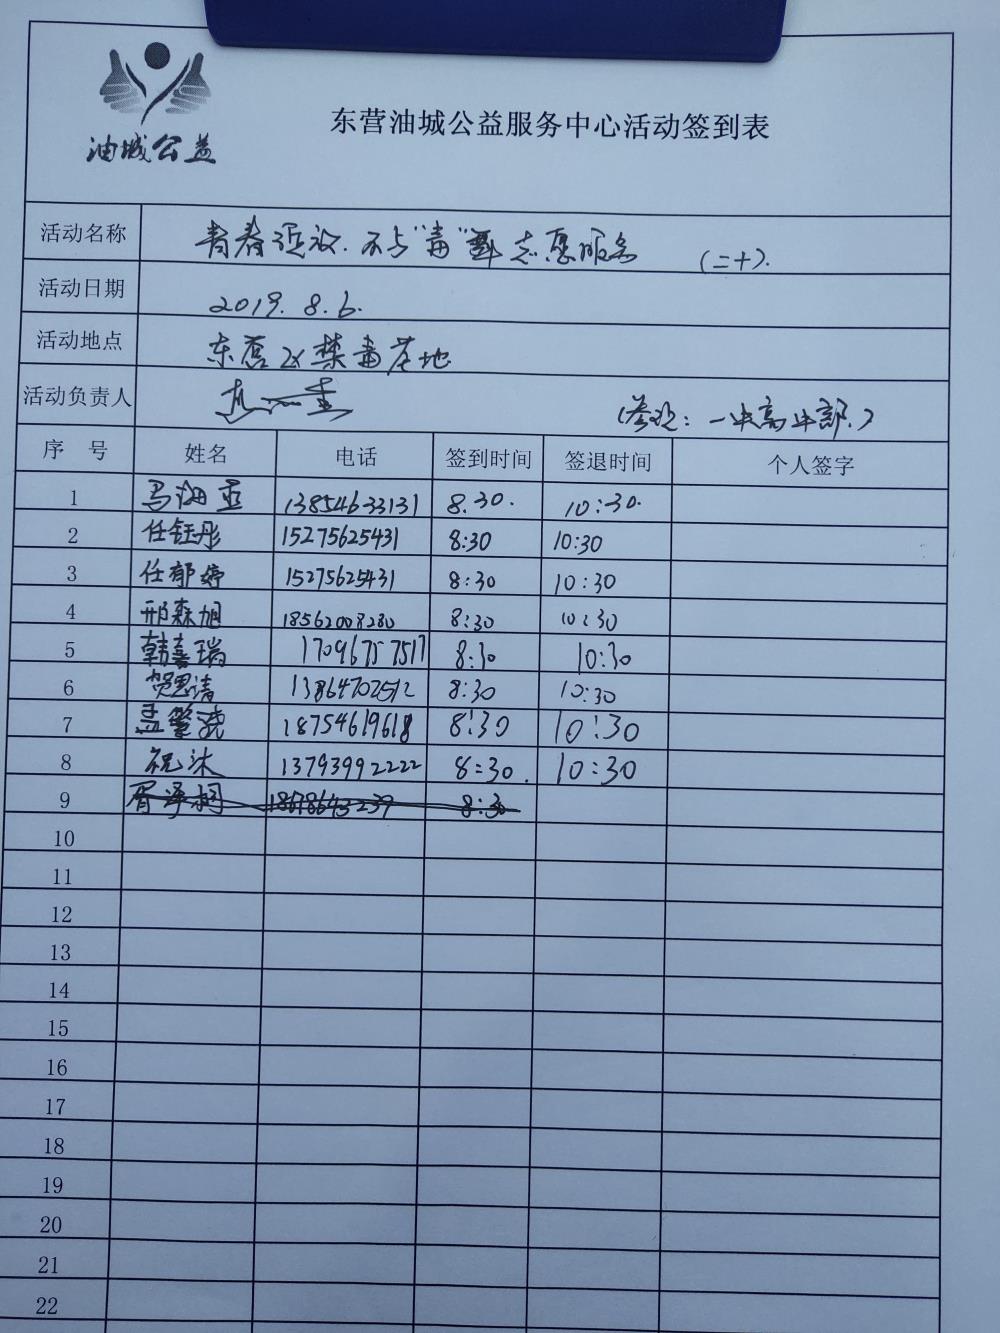 油城公益
东营油城公益服务中心活动签到表
活动名称 青春绽放.不与"毒"舞 志愿服务 (二十).
活动日期 2019.8.6.
活动地点 东营区禁毒基地
活动负责人 (参观:一中高中部.)
序 号 姓名 电话 签到时间 签退时间 个人签字
1 马海 13854633131 8.30. 10:30.
2 任钰彤 15275625431 8:30 10:30
3 任郁婷 15275625431 8:30 10:30
4 邢森旭 18562008280 8:30 10:30
5 韩嘉瑞 17096757517 8:30 10:30
6 贺思清 13864702512 8:30 10:30
7 孟 18754619618 8:30 10:30
8 祝沐 13793992222 8:30. 10:30
9 胥泽 18678643239 8:30
10
11
12
13
14
15
16
17
18
19
20
21
22